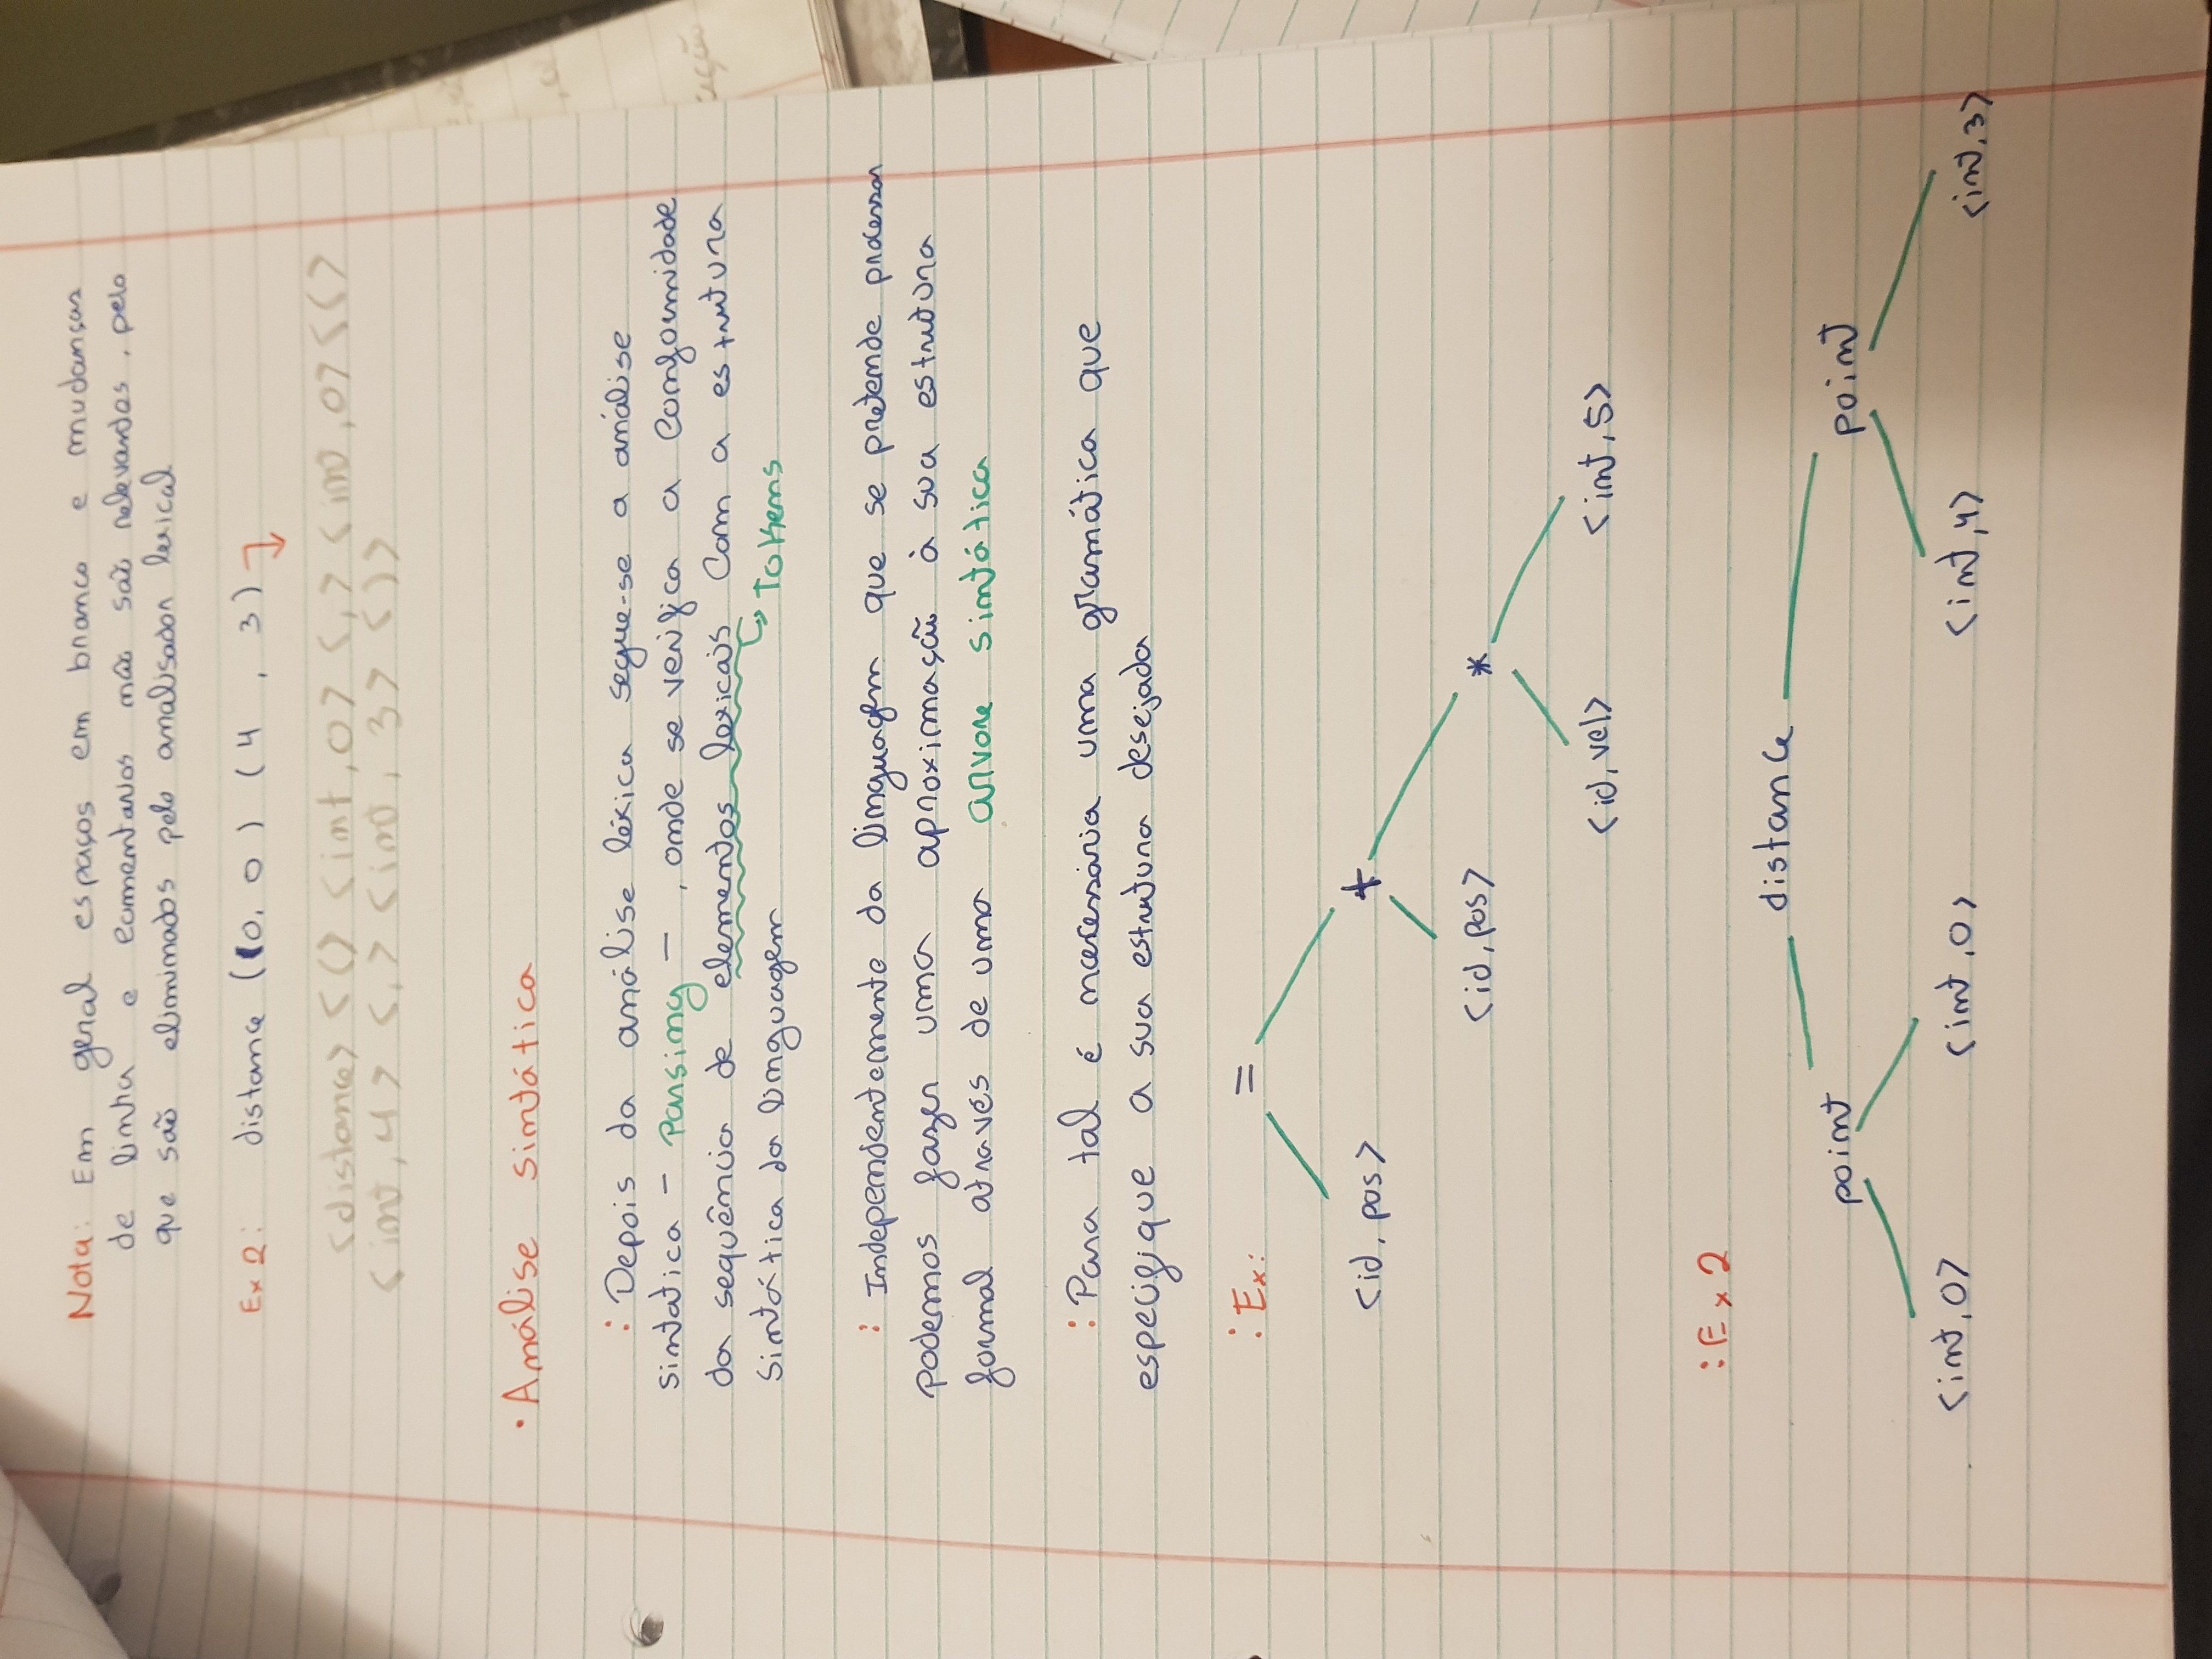 Nota: Em geral espaços em branco e mudanças
de linha e comentarios não são relevantes, pelo
que são eliminados pelo analisador lexical
Ex 2: distance (0, 0) (4 , 3)
<distance> <(> <int, 0> <,> <int, 0> <(>
<int, 4> <,> <int, 3> <)>
• Análise sintática
: Depois da análise léxica segue-se a análise
sintatica – Parsing – , onde se verifica a conformidade
da sequência de elementos lexicais com a estrutura
↳ Tokens
sintática da linguagem
: Independentemente da linguagem que se pretende processar
podemos fazer uma aproximação à sua estrutura
formal através de uma arvore sintática
: Para tal é necessária uma gramática que
especifique a sua estrutura desejada
: Ex: =
<id, pos> +
<id, pos> *
<id, vel> <int, 5>
: Ex 2
distance
point point
<int, 0> <int, 0> <int, 4> <int, 3>